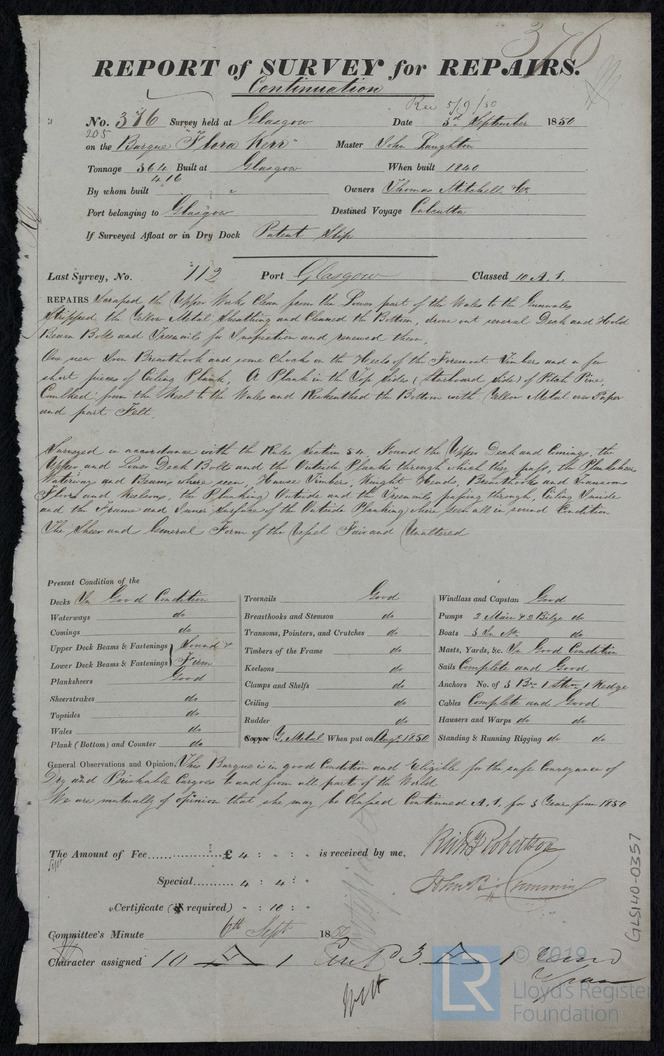 376
REPORT of SURVEY for REPAIRS.
Continuation
Rec 5/9/50
No. 376 Survey held at Glasgow Date 3rd September 1850
205
on the Barque "Flora Kerr" Master John Laughton
Tonnage 364 Built at Glasgow When built 1840
416
By whom built " Owners Thomas Mitchell & Co
Port belonging to Glasgow Destined Voyage Calcutta
If Surveyed Afloat or in Dry Dock Patent Slip
Last Survey, No. 112 Port Glasgow Classed 10 A.1.
REPAIRS Scraped the Upper Works Clean from the Lower part of the Wales to the Gunwales
Stripped the Yellow Metal Sheathing and Cleaned the Bottom, drove out several Deck and Hold
Beam Bolts and Treenails for Inspection and renewed them,
One new Iron Breasthook and some Chocks on the Heels of the Foremost Timber and a few
short pieces of Ceiling Plank, A Plank in the Top sides (Starboard side) of Pitch Pine,
Caulked from the Keel to the Wales and Resheathed the Bottom with Yellow Metal over Paper
and part Felt.
Surveyed in accordance with the Rules Section 54. Found the Upper Deck and Comings, the
Upper and Lower Deck Bolts and the Outside Planks through which they pass, the Plansheer
Waterways and Beams where seen, Hawse Timber, Knight Heads, Breasthooks and Transoms
Floors and Keelsons, the Planking Outside and the Treenails passing through, Ceiling Inside
and the Frame and Inner Surface of the Outside Planking where seen all in sound Condition
The Sheer and General Form of the Vessel Fair and Unaltered
Present Condition of the
Decks In Good Condition
Waterways do
Comings do
Upper Deck Beams & Fastenings } Sound &
Lower Deck Beams & Fastenings } Firm
Planksheers Good
Sheerstrakes do
Topsides do
Wales do
Plank (Bottom) and Counter do
Treenails Good
Breasthooks and Stemson do
Transoms, Pointers, and Crutches do
Timbers of the Frame do
Keelsons do
Clamps and Shelfs do
Ceiling do
Rudder do
Copper Y. Metal When put on Augt 1850
Windlass and Capstan Good
Pumps 2 Main & 2 Bilge do
Boats 3 In No. do
Masts, Yards, &c. In Good Condition
Sails Complete and Good
Anchors No. of 3 Br. 1 Strm 1 Kedge
Cables Complete and Good
Hausers and Warps do do
Standing & Running Rigging do do
General Observations and Opinion, This Barque is in good Condition and Eligible for the safe Conveyance of
Dry and Perishable Cargoes to and from all parts of the World.
We are mutually of opinion that she may be Classed Continued A.1. for 3 Years from 1850
The Amount of Fee £ 4 : " : " is received by me, Richd Robertson
Special 4 : 4 : "
John B. Cumming
Certificate (if required) " : 10 : "
Committee's Minute 6th Sept 1850
Character assigned 10 A 1 A 1
GLS140-0357
© 2019
LR
Lloyd's Register
Foundation